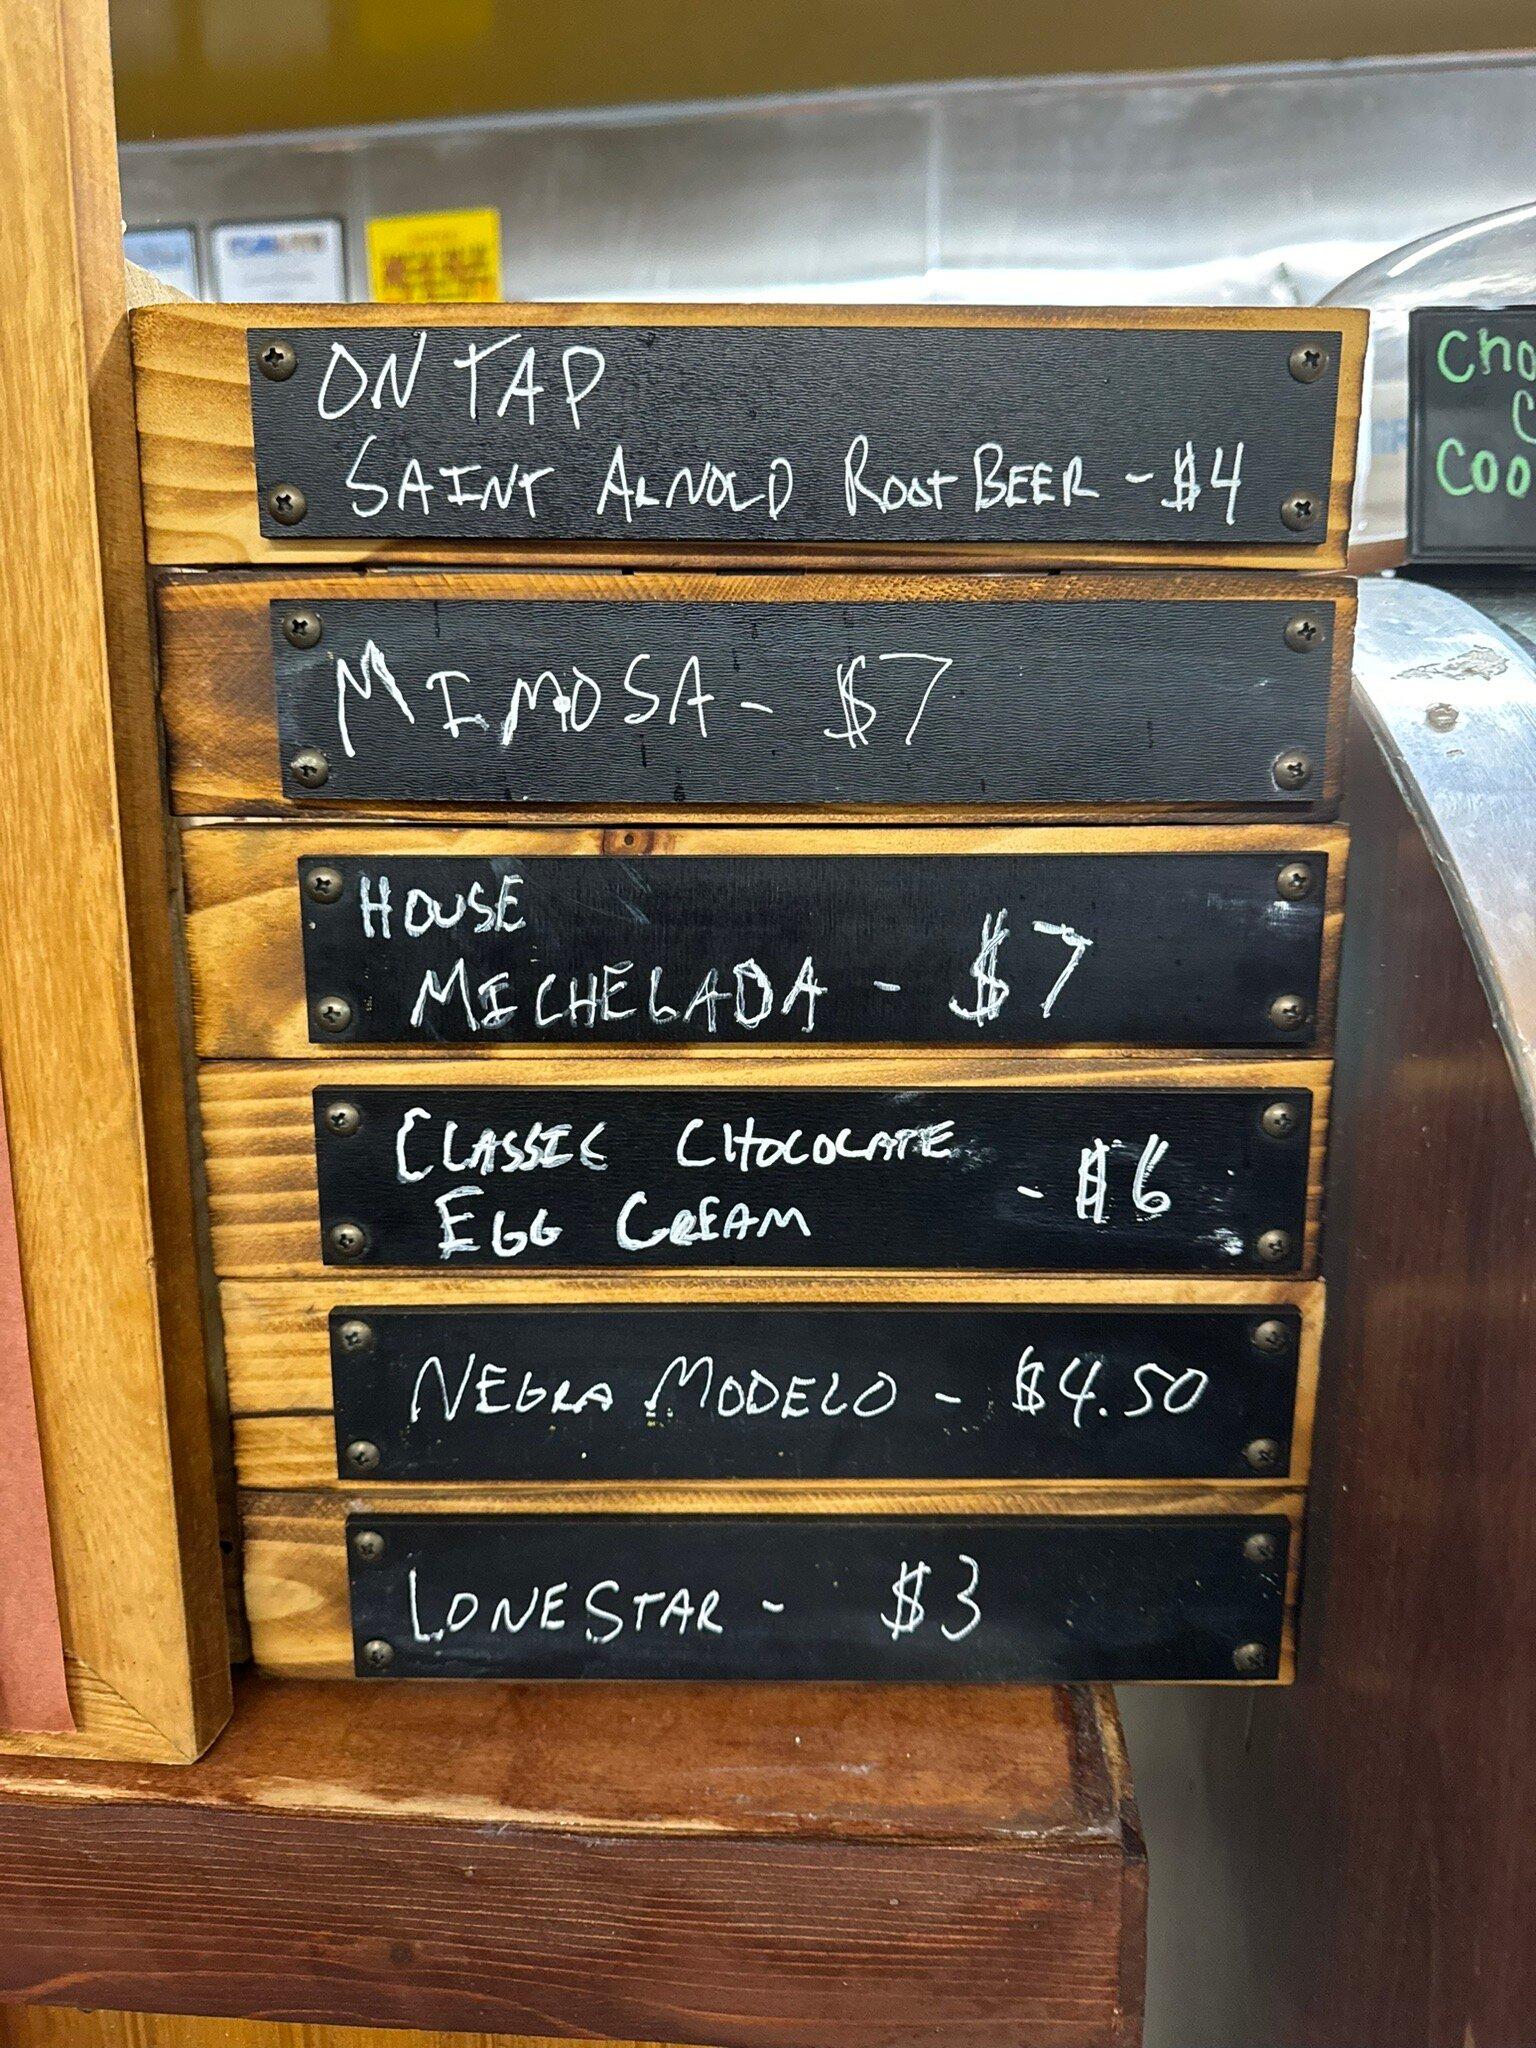 ON TAP
SAINT ARNOLD ROOT BEER - $4
MIMOSA - $7
HOUSE
MICHELADA - $7
CLASSIC CHOCOLATE
EGG CREAM - $6
NEGRA MODELO - $4.50
LONESTAR - $3